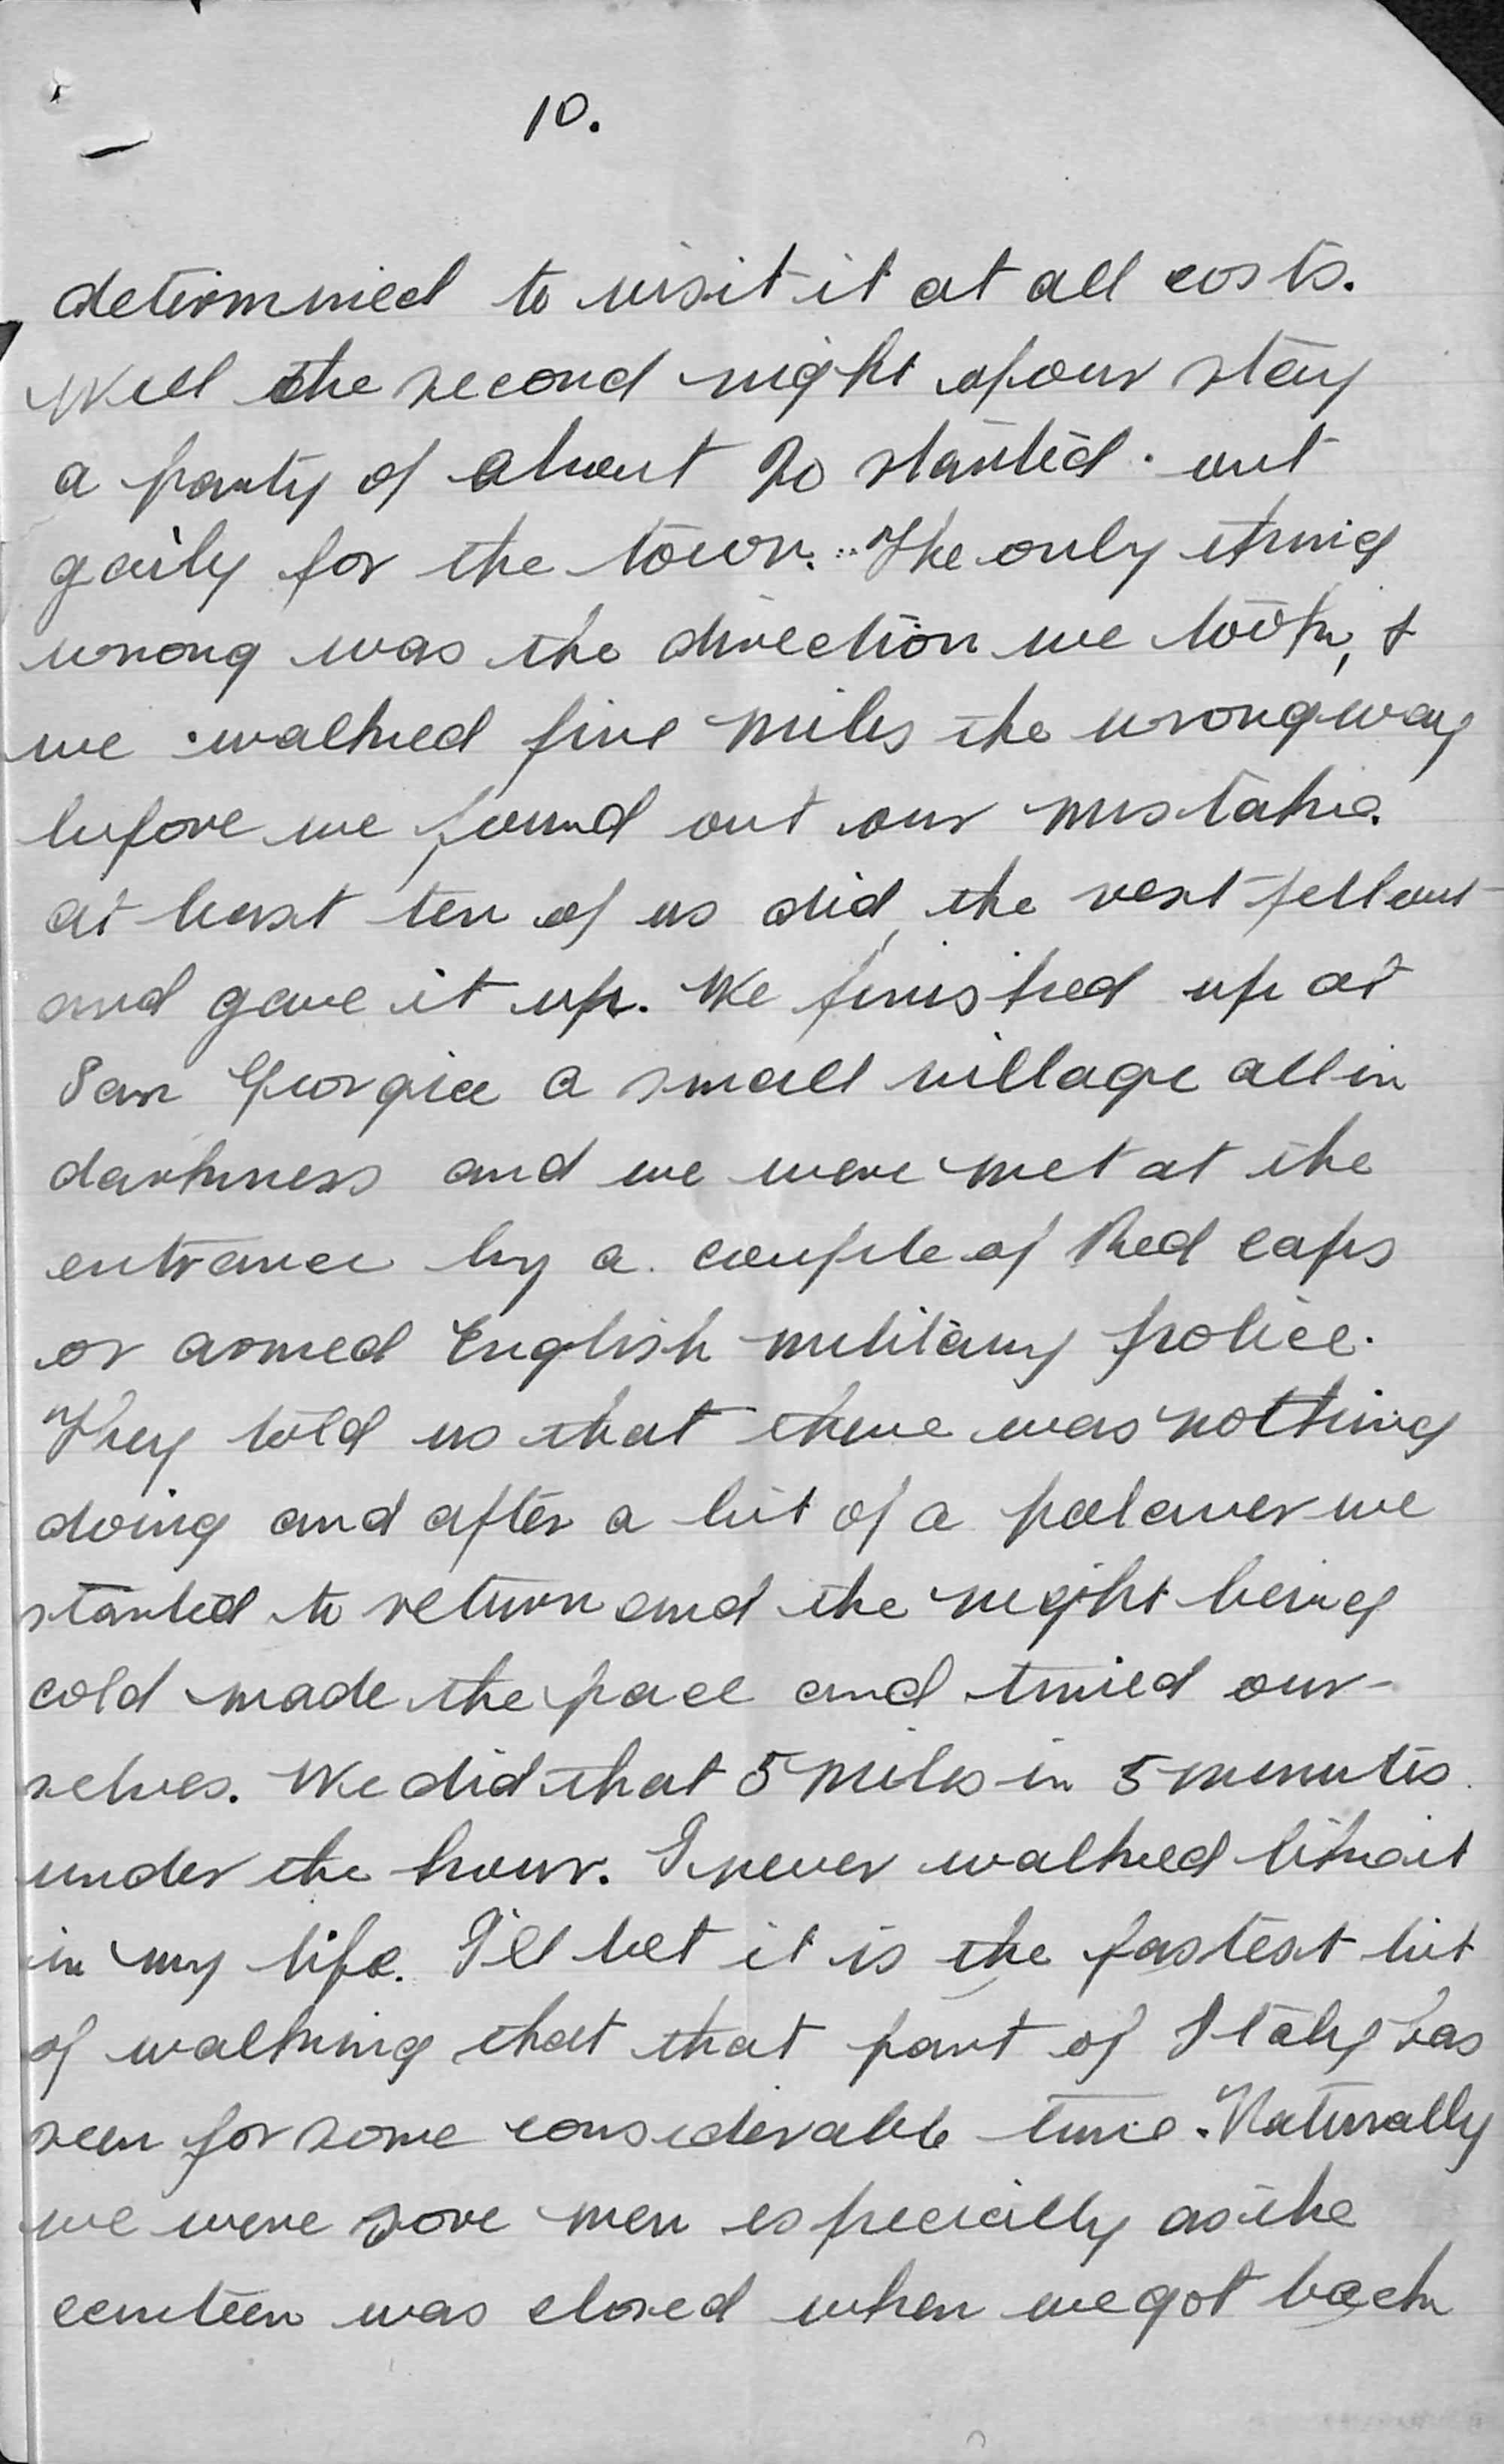 10.
determined to visit it at all costs.
Well the second night of our stay
a party of about 20 started out
gaily for the town. The only thing
wrong was the direction we took, &
we walked five miles the wrong way
before we found out our mistake.
at least ten of us did, the rest fell out
and gave it up. We finished up at
San Georgia a small village all in
darkness and we were met at the
entrance by a couple of Red caps
or armed English military police.
They told us that there was nothing
doing and after a bit of a palaver we
started to return and the night being
cold made the pace and timed our-
selves. We did that 5 miles in 5 minutes
under the hour. I never walked like it
in my life. I'll bet it is the fastest bit
of walking that that part of Italy has
seen for some considerable time. Naturally
we were sore men especially as the
canteen was closed when we got back